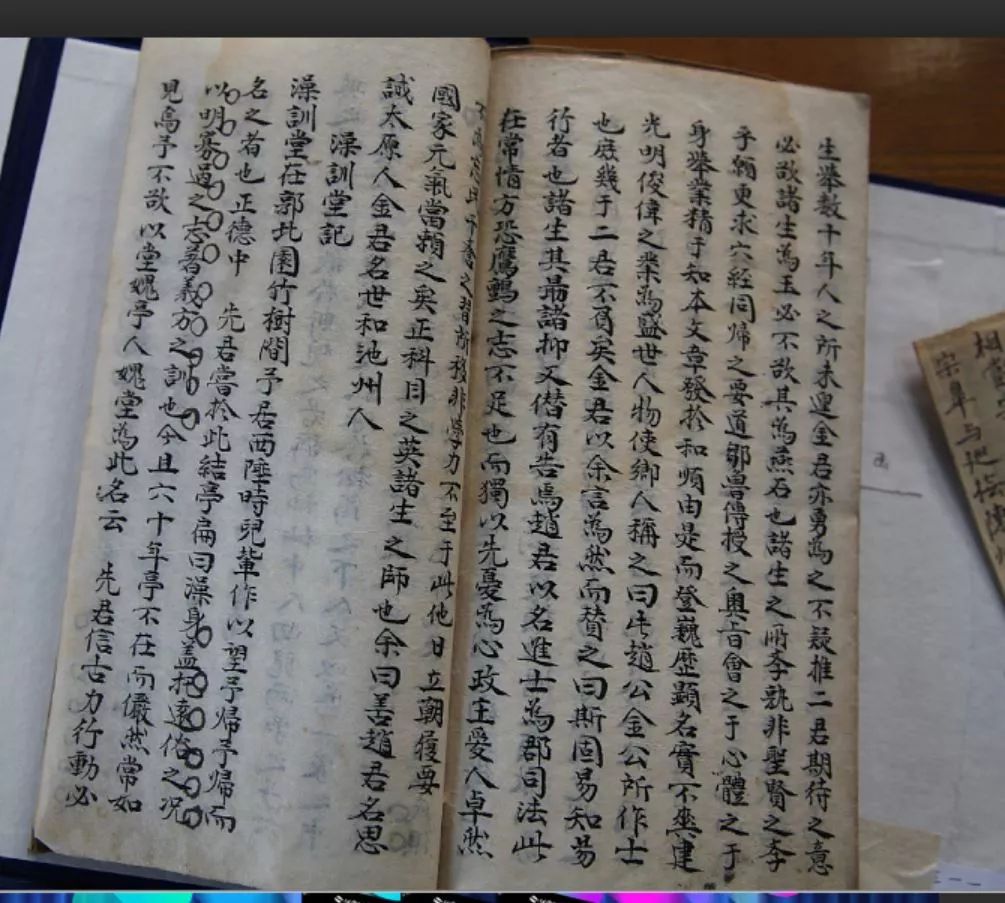 生舉數十年人之所未運金君亦勇為之不疑推二君期待之意
必欲諸生為玉必不欲其為燕石也諸生之所李孰非聖賢之李
乎額更求六經同帰之要道鄒魯傳授之奧旨會之于心體之于
身舉業精于知本文章發於和順由是而登巍歴顯名實不爽建
光明俊偉之業為盛世人物使鄉人稱之曰此趙公金公所作士
也庭幾于二君不負矣金君以余言為然而賛之曰斯固易知易
行者也諸生其朂諸抑又僣有告焉趙君以名進士為郡司法此
在常情方恐鷹鸇之志不足也而獨以先憂為心政主愛人卓然
之習所移非學力不至于此他日立朝履要
國家元氣當賴之矣正科目之英諸生之師也余曰善趙君名思
誠太原人金君名世和池州人
澡訓堂記
澡訓堂在郭北園竹樹間予居西陲時兒輩作以望予帰予帰而
名之者也正德中 先君嘗於此結亭扁曰澡身盖托遠俗之況
以明寡過之志著義方之訓也今且六十年亭不在而儼然常如
見焉予不欲以堂媿亭人媿堂為此名云 先君信古力行動必
相
宗臯与地